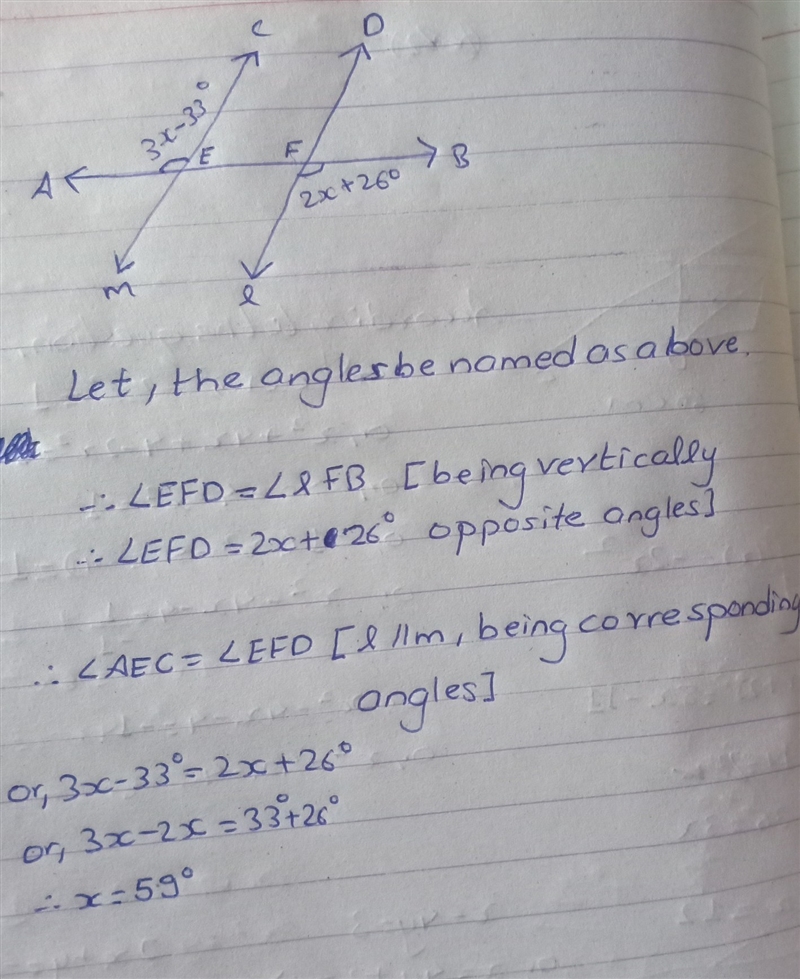 C D
3x-33°
A E F B
2x+26°
m l
Let, the angles be named as above.
∴ ∠EFD = ∠lFB [being vertically
∴ ∠EFD = 2x+26° opposite angles]
∴ ∠AEC = ∠EFD [l//m, being corresponding
angles]
or, 3x-33° = 2x+26°
or, 3x-2x = 33°+26°
∴ x = 59°